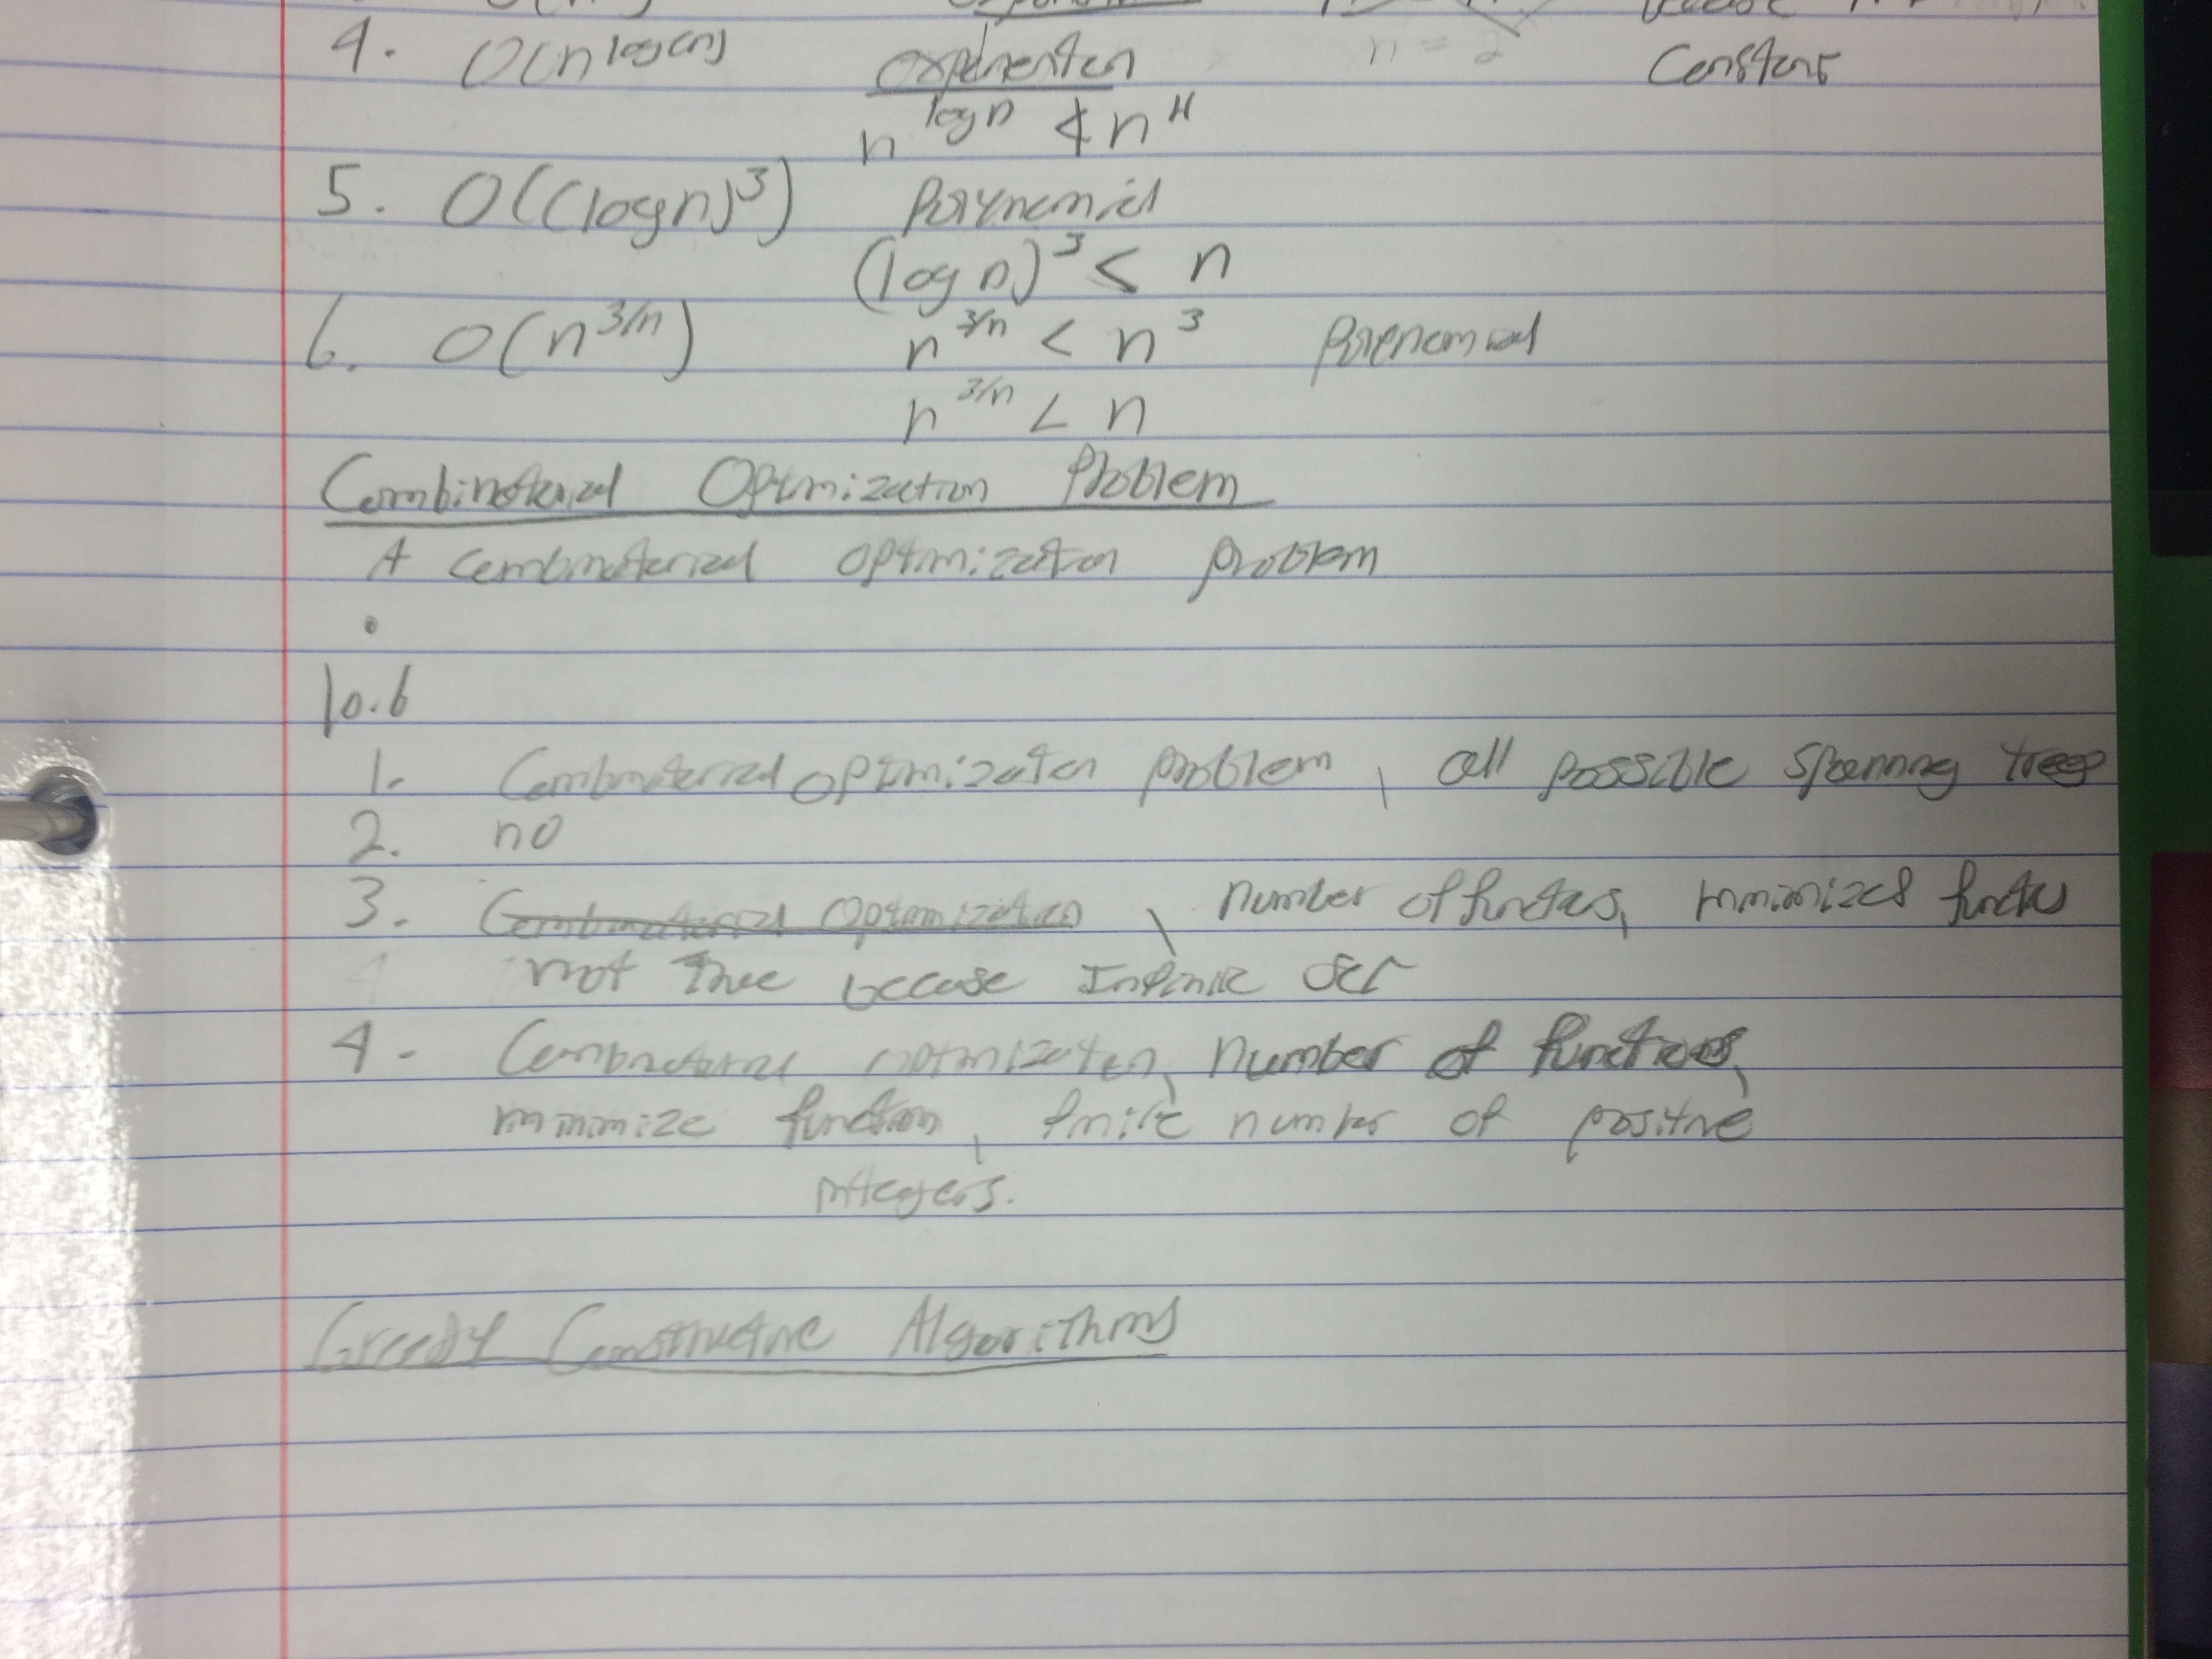 4. O(n^log(n)) exponential n = 2 Constant
n^log n ≮ n^4
5. O((log n)^3) Polynomial
(log n)^3 < n
6. O(n^3/n) n^3/n < n^3 Polynomial
n^3/n < n
Combinatorial Optimization Problem
A combinatorial optimization problem
•
10.6
1. Combinatorial optimization problem, all possible spanning trees
2. no
3. Combinatorial Optimization, number of functions, minimized function
not true because Infinite Set
4. Combinatorial optimization, number of functions,
minimize function, finite number of positive
integers.
Greedy Constructive Algorithms